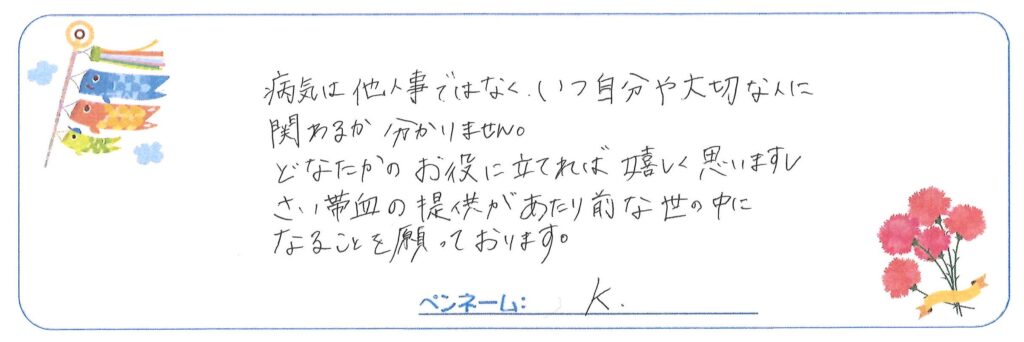 病気は他人事ではなく、いつ自分や大切な人に
関わるか分かりません。
どなたかのお役に立てれば嬉しく思いますし
さい帯血の提供があたり前な世の中に
なることを願っております。
ペンネーム: K.